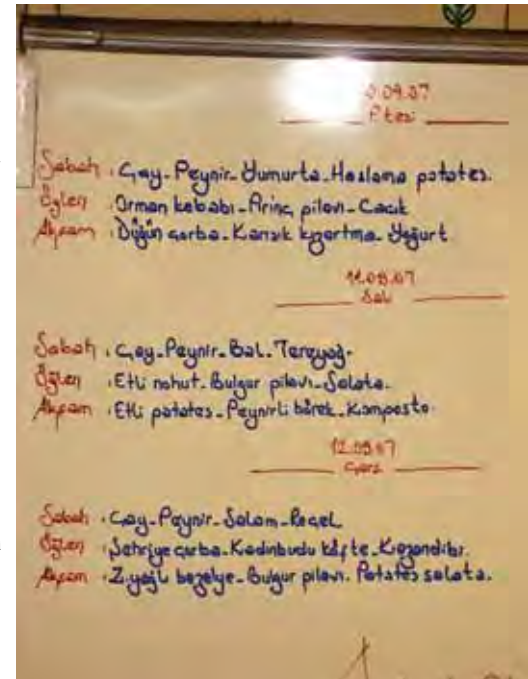 0.09.07
P.tesi
Sabah : Çay-Peynir-Yumurta-Haşlama patates.
Öğlen : Orman kebabı-Pirinç pilavı-Cacık
Akşam : Düğün çorba-Karışık kızartma-Yoğurt
11.09.07
Salı
Sabah : Çay-Peynir-Bal-Tereyağ.
Öğlen : Etli nohut-Bulgur pilavı-Salata.
Akşam : Etli patates-Peynirli börek-Komposto.
12.09.07
Çarş
Sabah : Çay-Peynir-Salam-Reçel
Öğlen : Şehriye çorba-Kadınbudu köfte-Kazandibi.
Akşam : Z.yağlı bezelye-Bulgur pilavı-Patates salata.